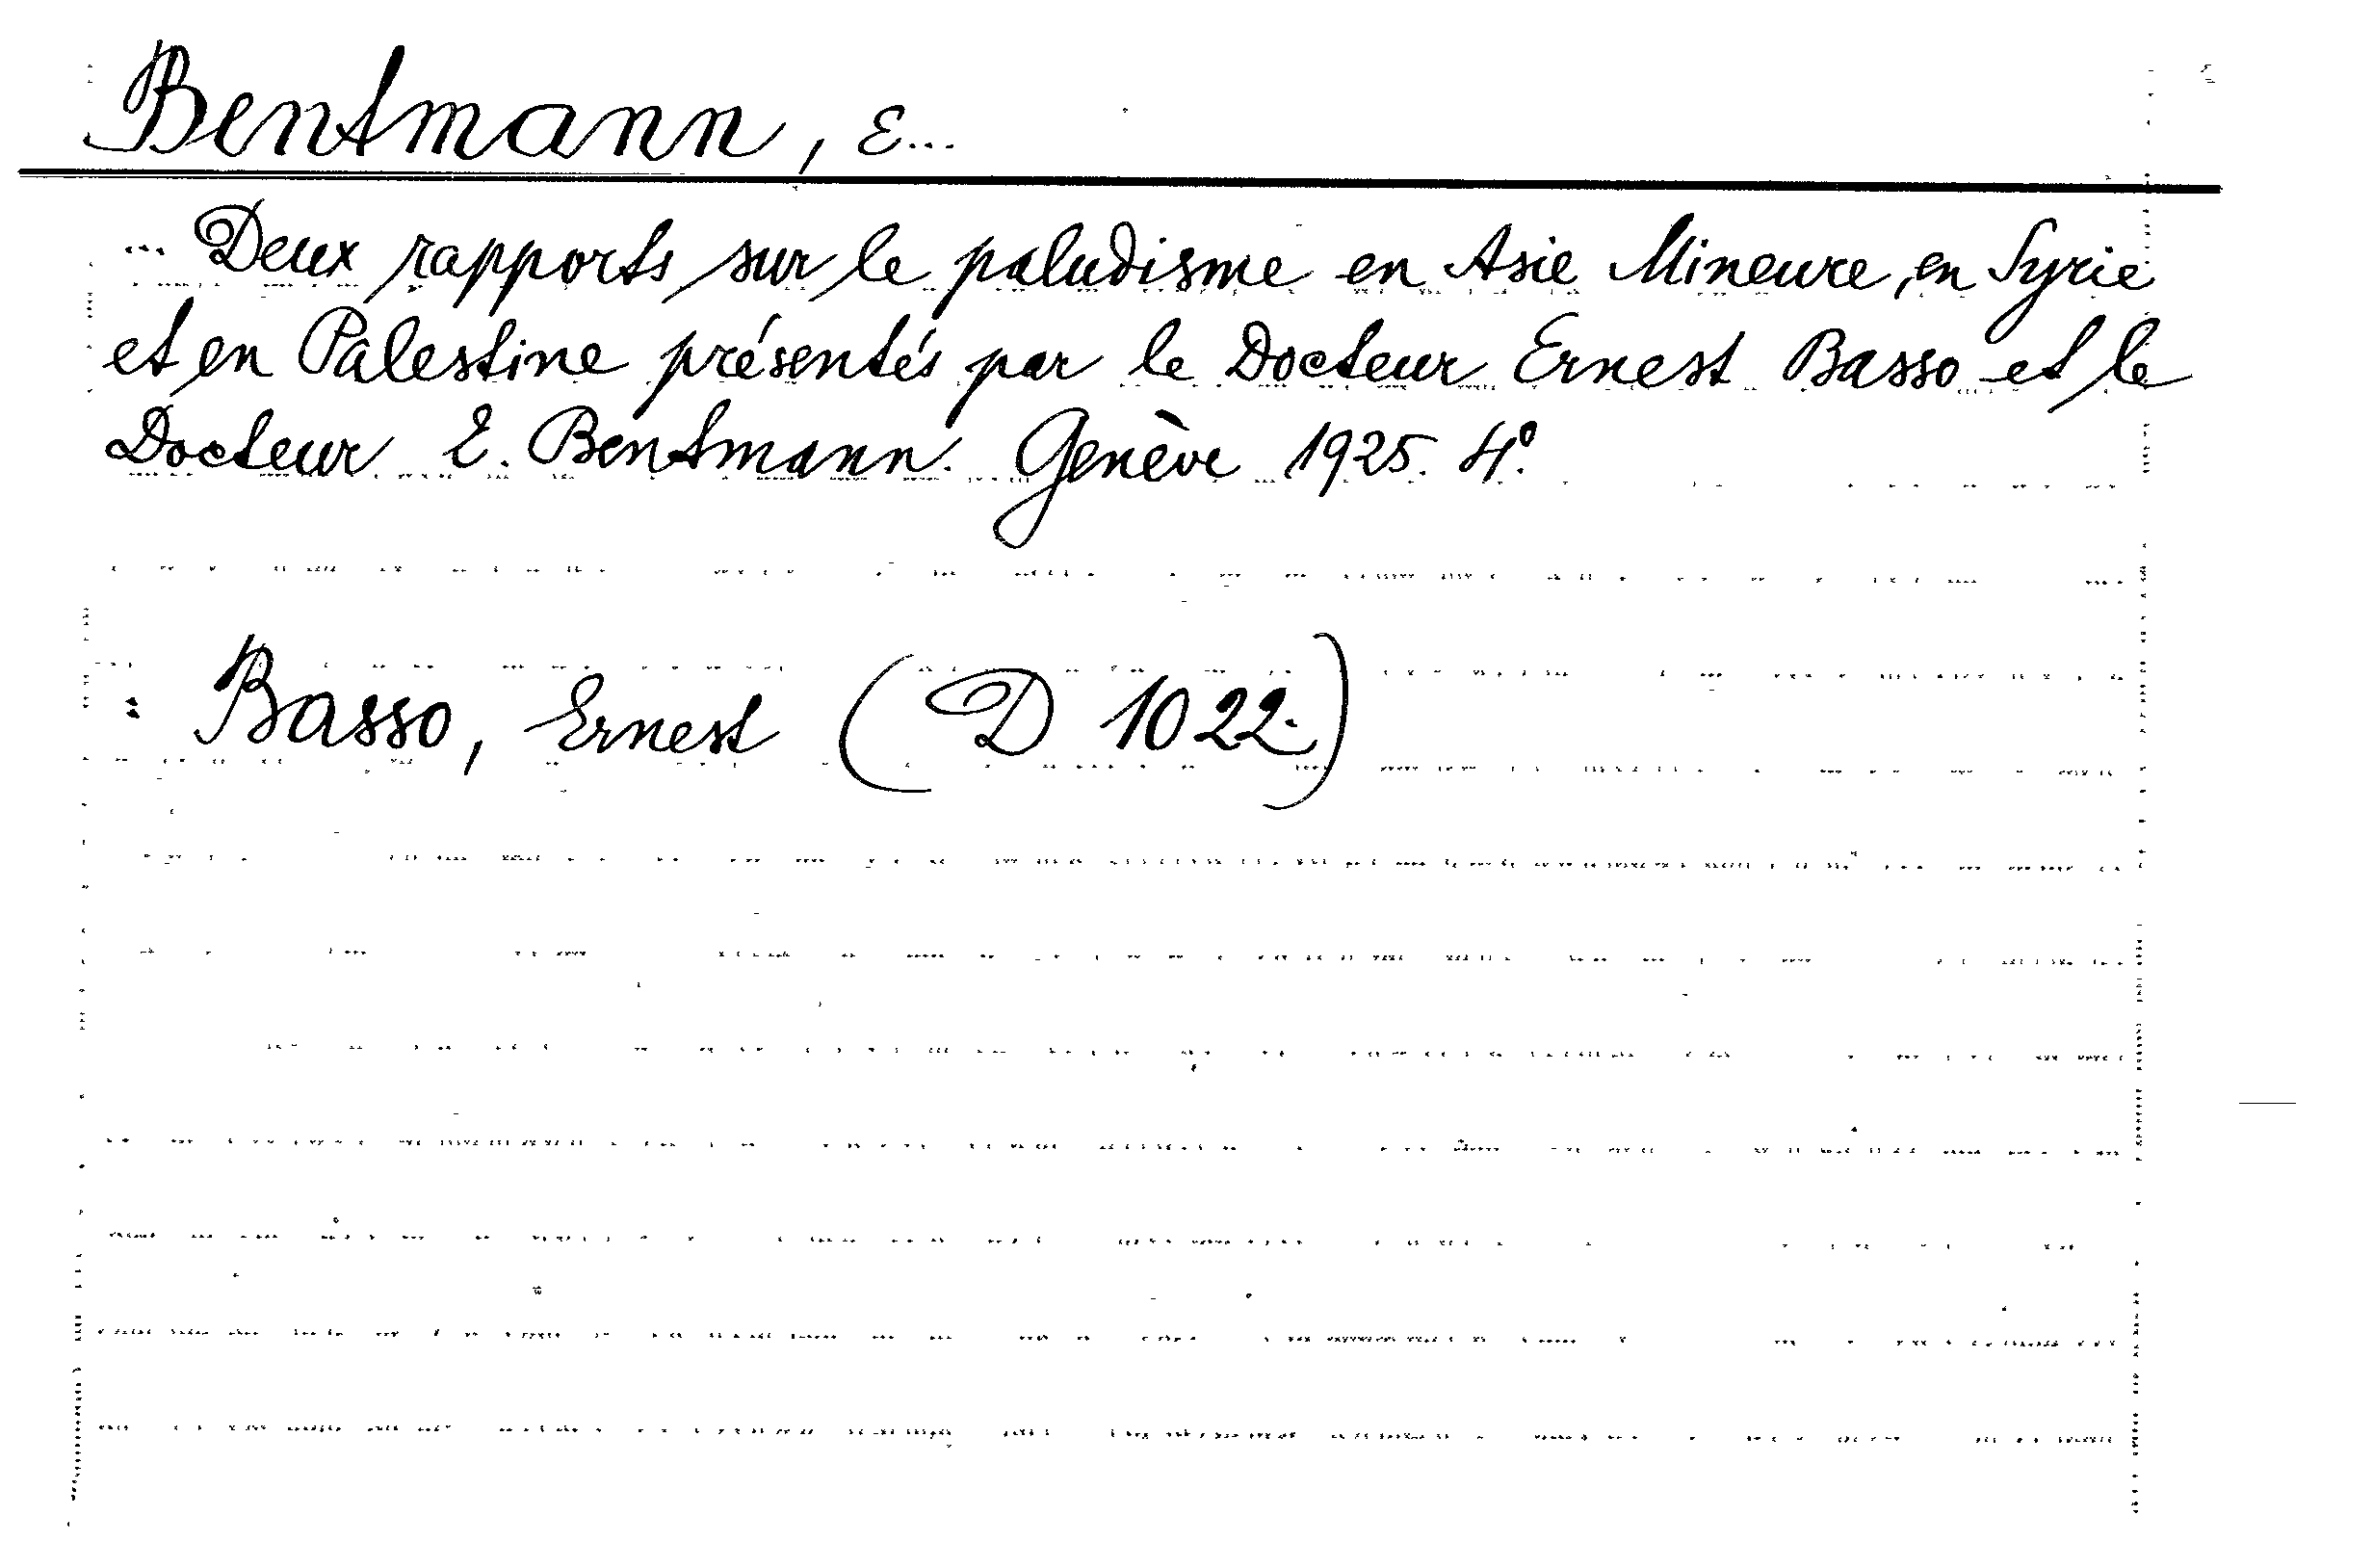 Bentmann, E...
... Deux rapports sur le paludisme en Asie Mineure, en Syrie
et en Palestine présentés par le Docteur Ernest Basso et le
Docteur E. Bentmann. Genève 1925. 4º.
: Basso, Ernest (D 1022.)